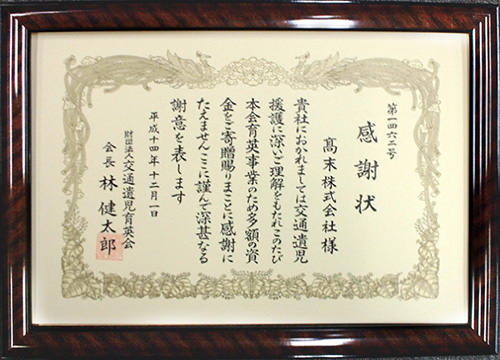 第一四六二号
感謝状
髙末株式会社様
貴社におかれましては交通遺児
援護に深いご理解をもたれこのたび
本会育英事業のため多額の資
金をご寄贈賜りまことに感謝に
たえませんここに謹んで深甚なる
謝意を表します
平成十四年十二月一日
財団法人交通遺児育英会
会長 林健太郎